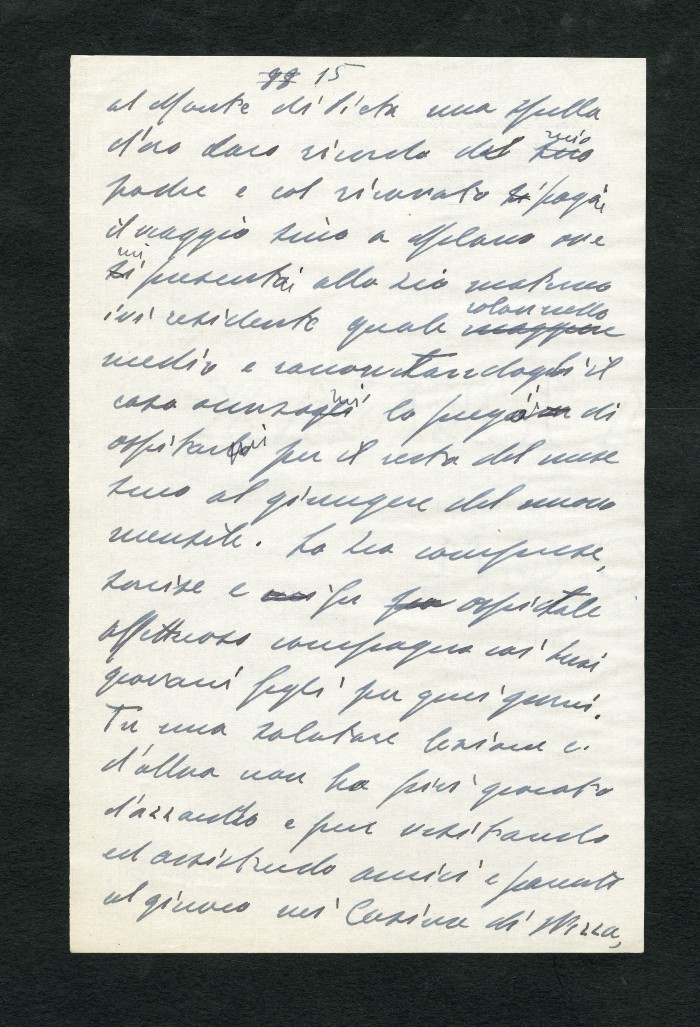 15
al Monte di Pietà una spilla
d'oro caro ricordo del mio
padre e col ricavato pagai
il viaggio sino a Milano ove
mi presentai allo zio materno
ivi residente quale colonnello
medico e raccontandogli il
caso occorsomi lo pregai di
ospitarmi per il resto del mese
sino al giungere del nuovo
mensile. Lo zio comprese,
sorrise e mi fu ospitale
affettuoso compagno coi suoi
giovani figli per quei giorni.
Fu una salutare lezione e
d'allora non ho più giocato
d'azzardo e pur visitando
ed assistendo amici e parenti
al giuoco nei Casino di Nizza,